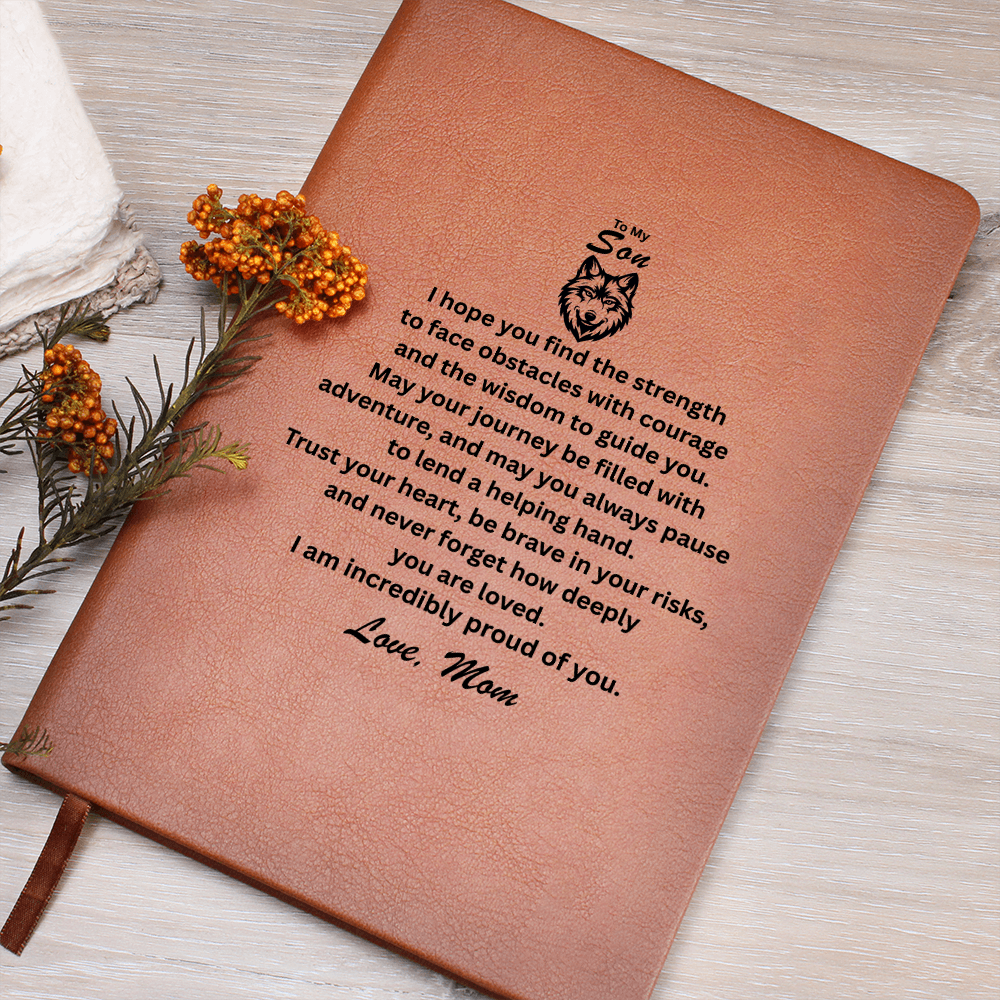 To My
Son
I hope you find the strength
to face obstacles with courage
and the wisdom to guide you.
May your journey be filled with
adventure, and may you always pause
to lend a helping hand.
Trust your heart, be brave in your risks,
and never forget how deeply
you are loved.
I am incredibly proud of you.
Love, Mom